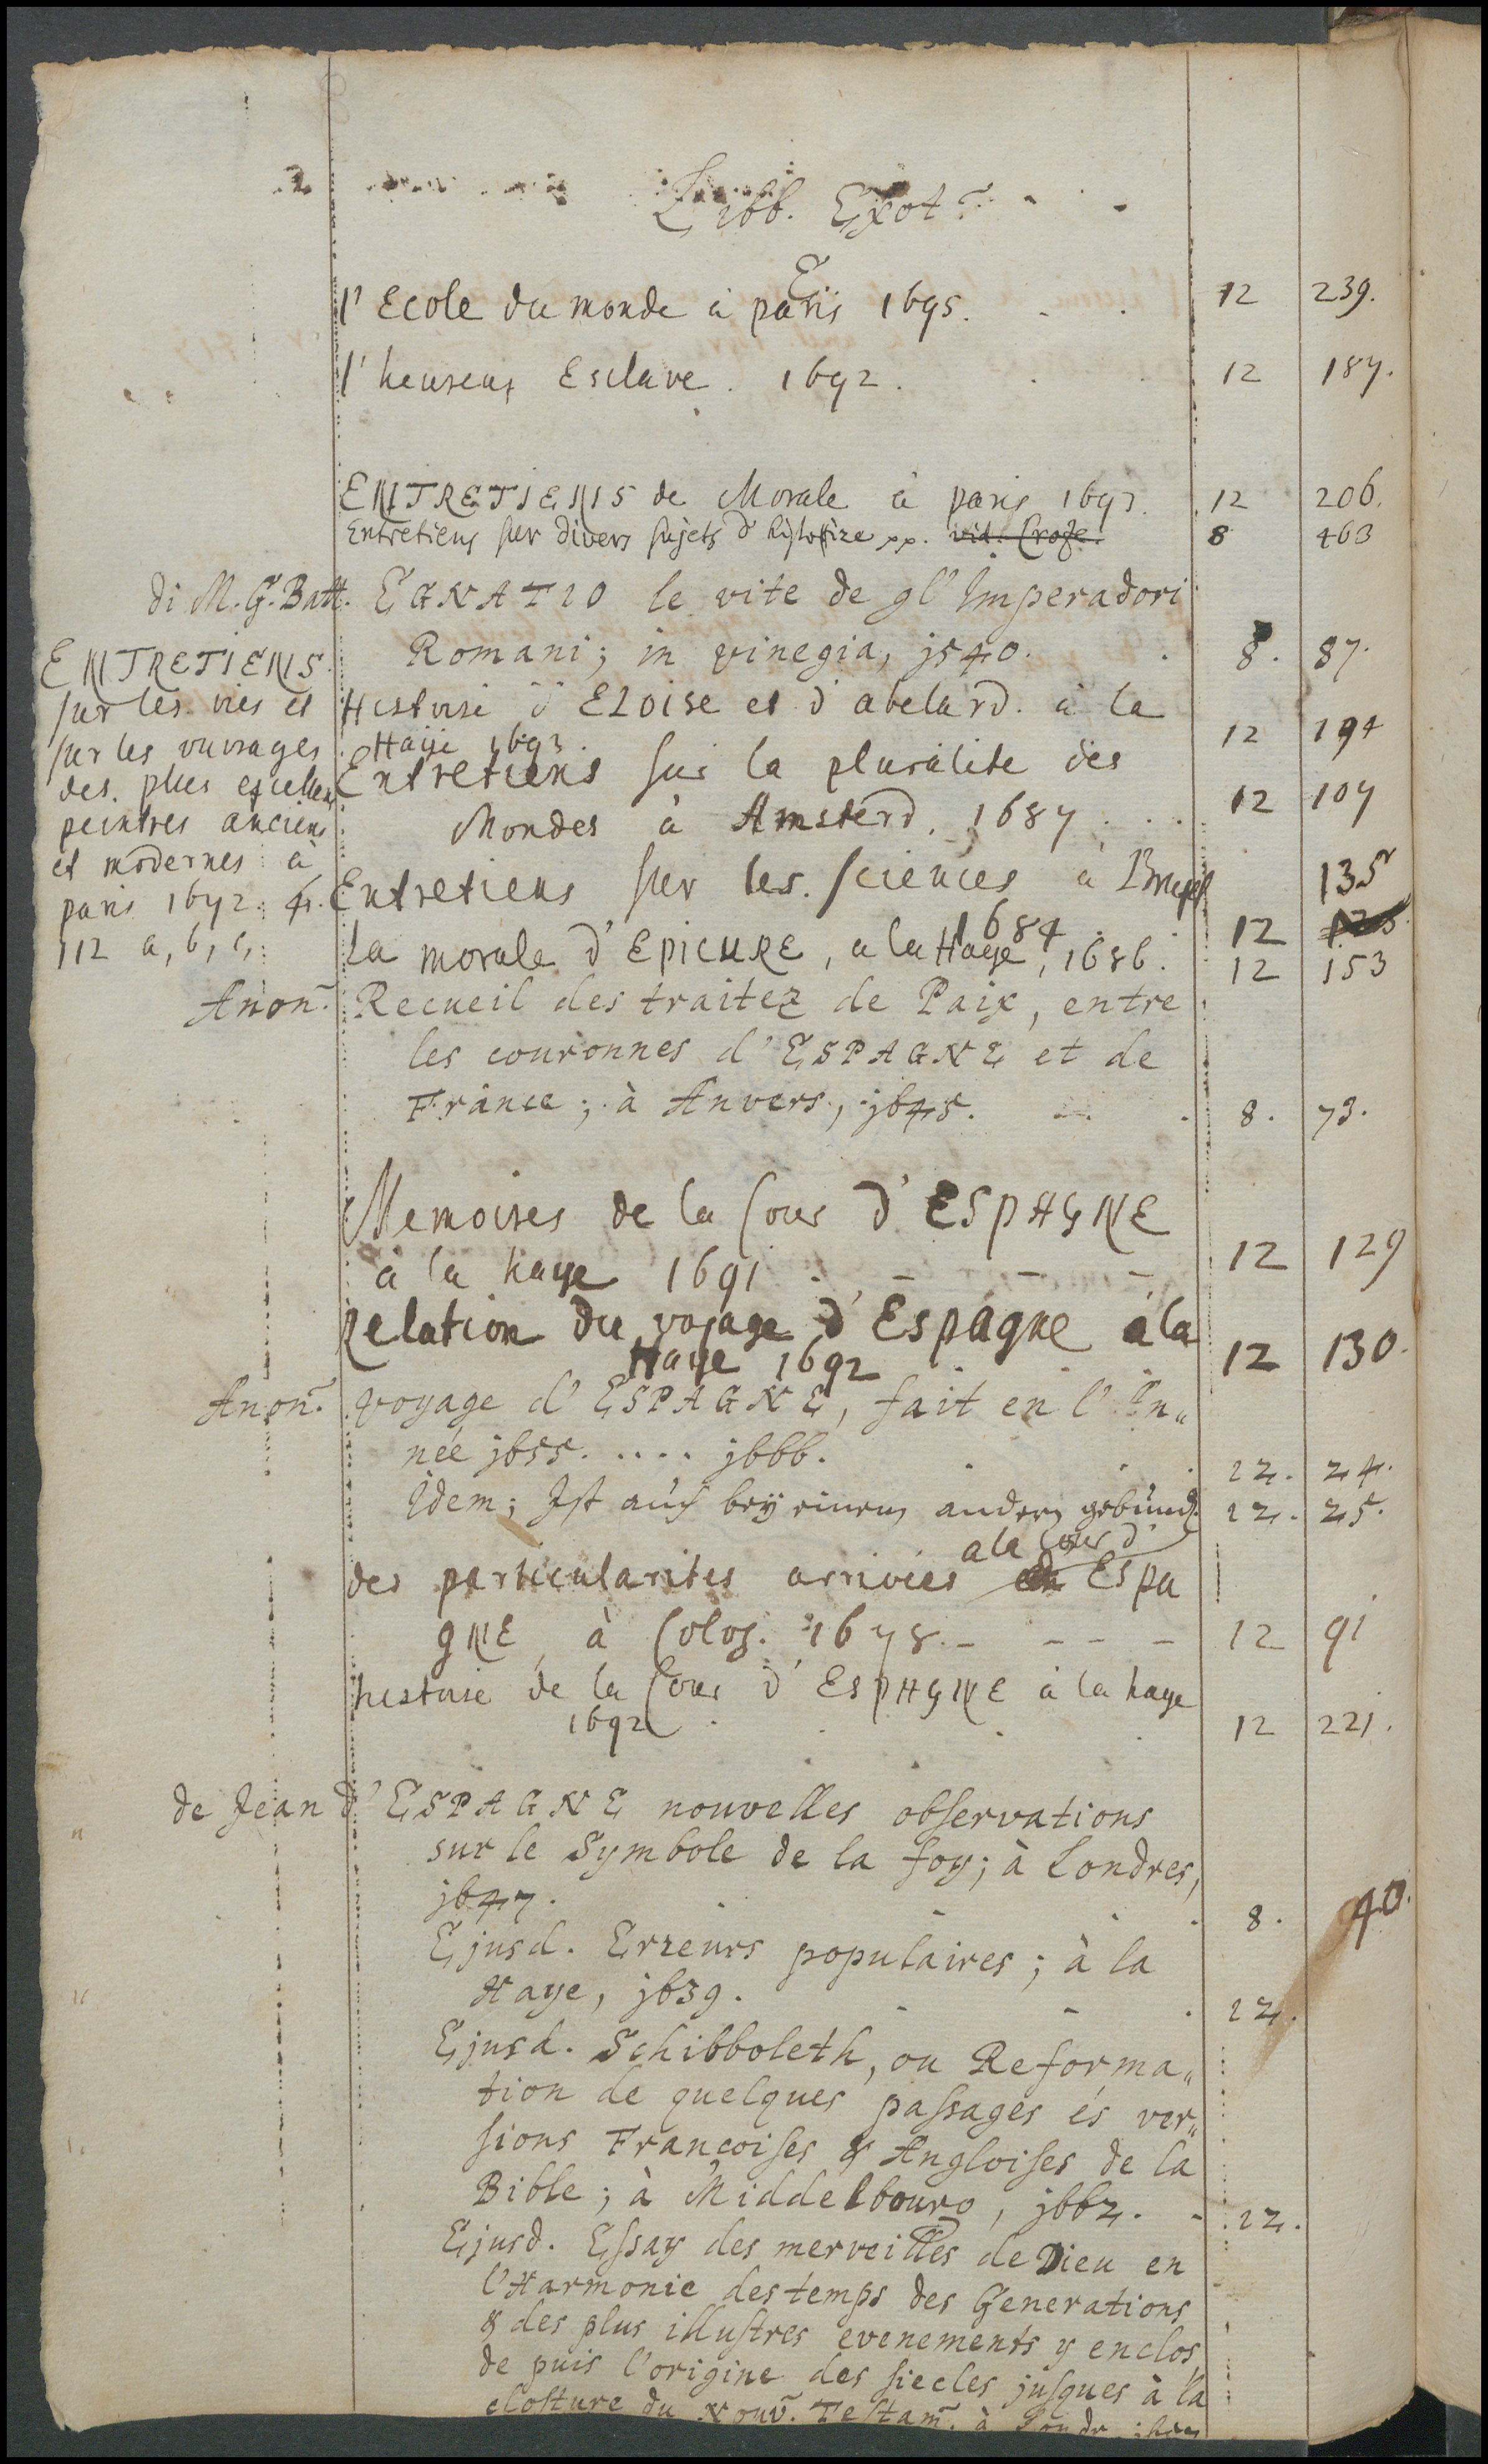 Libb. Exot.
E
l'Ecole du monde à paris 1695. 12 239.
l'heureux Esclave. 1692. 12 187.
ENTRETIENS de Morale à paris 1693. 12 206.
Entretiens sur divers sujets d'histoire pp. vid. Croze. 8 463
di M. G. Batt. EGNATIO le vite de gl'Imperadori
Romani; in vinegia, j540. 8. 87.
ENTRETIENS
sur les vies et
sur les ouvrages
des plus excellens
peintres anciens
et modernes à
paris 1672. 4.
112 a, b, c,
Histoire d'Eloise et d'abelard. à la
Haije 1693. 12 194
Entretiens sur la pluralite des
Mondes à Amsterd. 1687. 12 107
Entretiens sur les sciences à Bruxel 135
1684. 12
La morale d'EPICURE, a la Haye, 1686. 12 153
Anon. Recueil des traitez de Paix, entre
les couronnes d'ESPAGNE et de
France; à Anvers, j645. 8. 73.
Memoires de la Cour d'ESPAGNE
à la haye 1691. 12 129
Relation du vojage d'Espagne à la
Haye 1692 12 130.
Anon. voyage d'ESPAGNE, fait en l'An„
née j655. .... j666. 12. 24.
Idem; Ist auch bey einem andern gebund. 12. 25.
des particularites arrivées a la cour d'Espa
gNE à Colog. 1678. 12 91
histoire de la Cour d'ESPAGNE à la haye
1692. 12 221.
de Jean d'ESPAGNE nouvelles observations
sur le Symbole de la foy; à Londres,
j647. 8. 40.
Ejusd. Erreurs populaires; à la
Haye, j639. 12.
Ejusd. Schibboleth, ou Reforma„
tion de quelques passages és ver„
sions Françoises & Angloises de la
Bible; à Middelbourg, j662. 12.
Ejusd. Essay des merveilles de Dieu en
l'Harmonie des temps des Generations
& des plus illustres evenements y enclos
de puis l'origine des siecles jusques à la
closture du Nouv. Testam. à Londr.